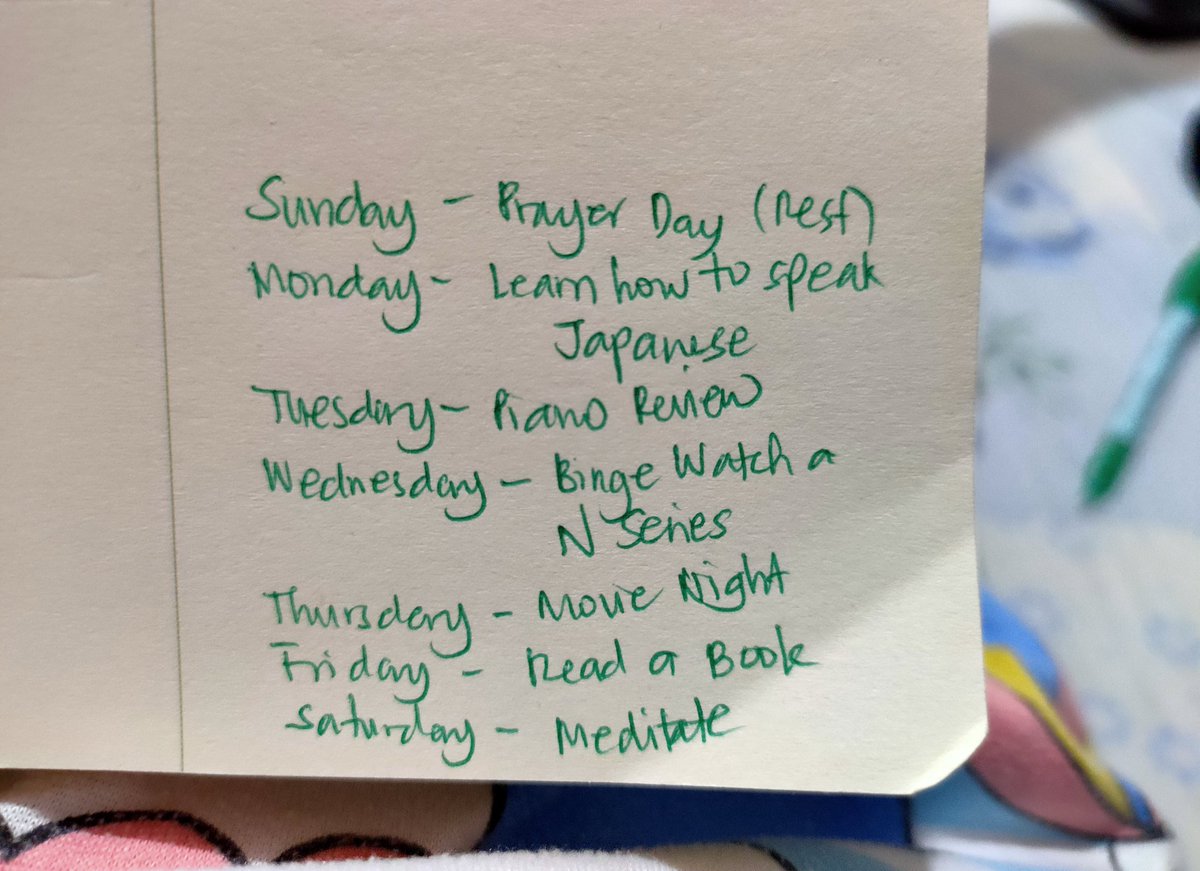 Sunday - Prayer Day (Rest)
Monday - Learn how to speak
Japanese
Tuesday - Piano Review
Wednesday - Binge Watch a
N Series
Thursday - Movie Night
Friday - Read a Book
Saturday - Meditate